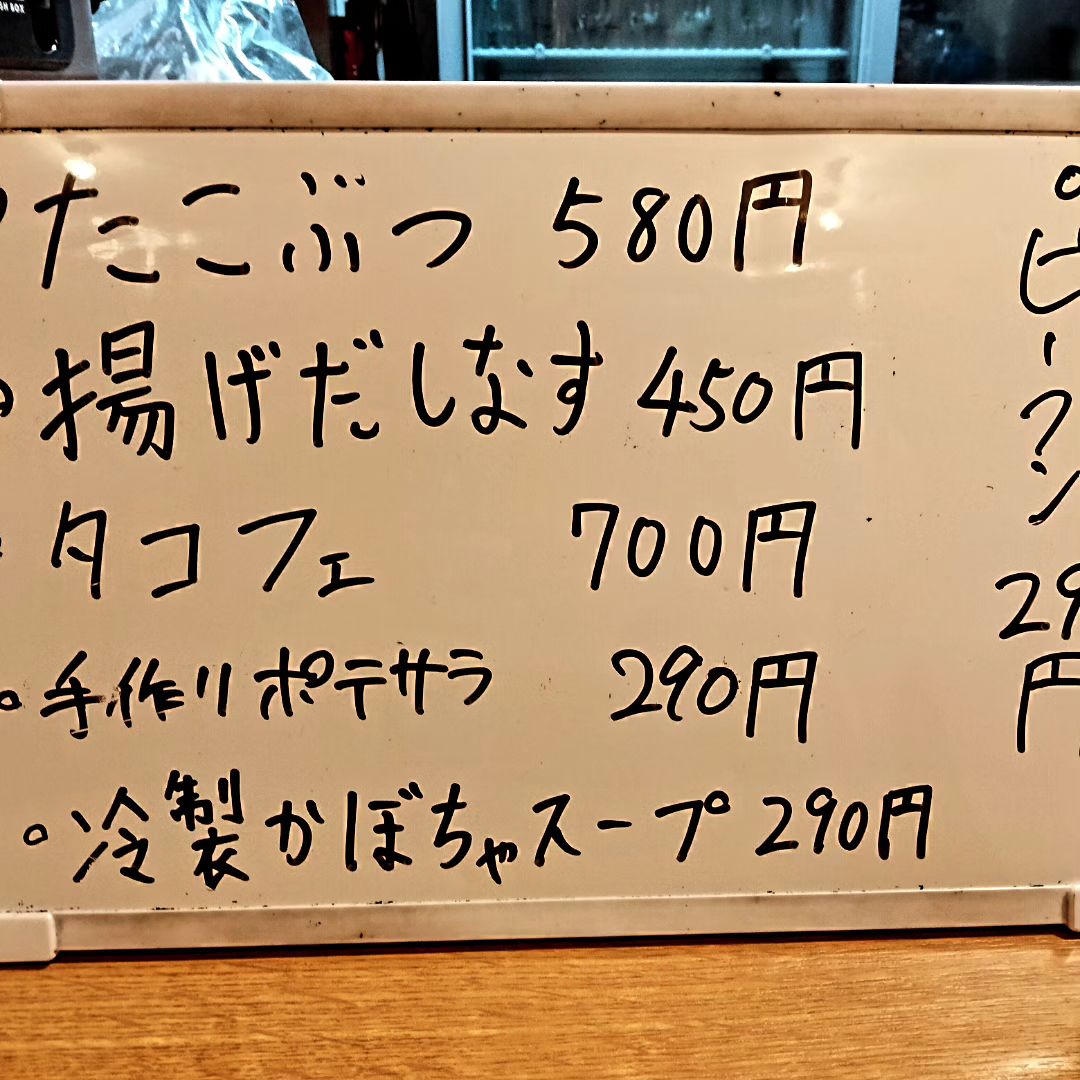 たこぶつ 580円
揚げだしなす 450円
タコフェ 700円
手作りポテサラ 290円
冷製かぼちゃスープ 290円